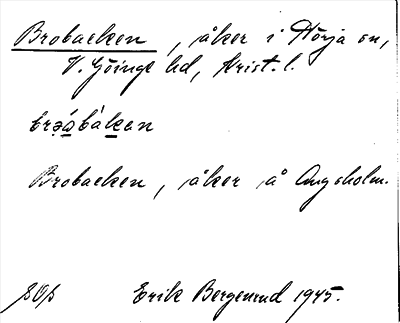 Brobacken, åker i Hörja sn,
V. Göinge hd, Krist. l.
brǝábákǝn
Brobacken, åker å Angsholm.
Erik Bergenrud 1945.